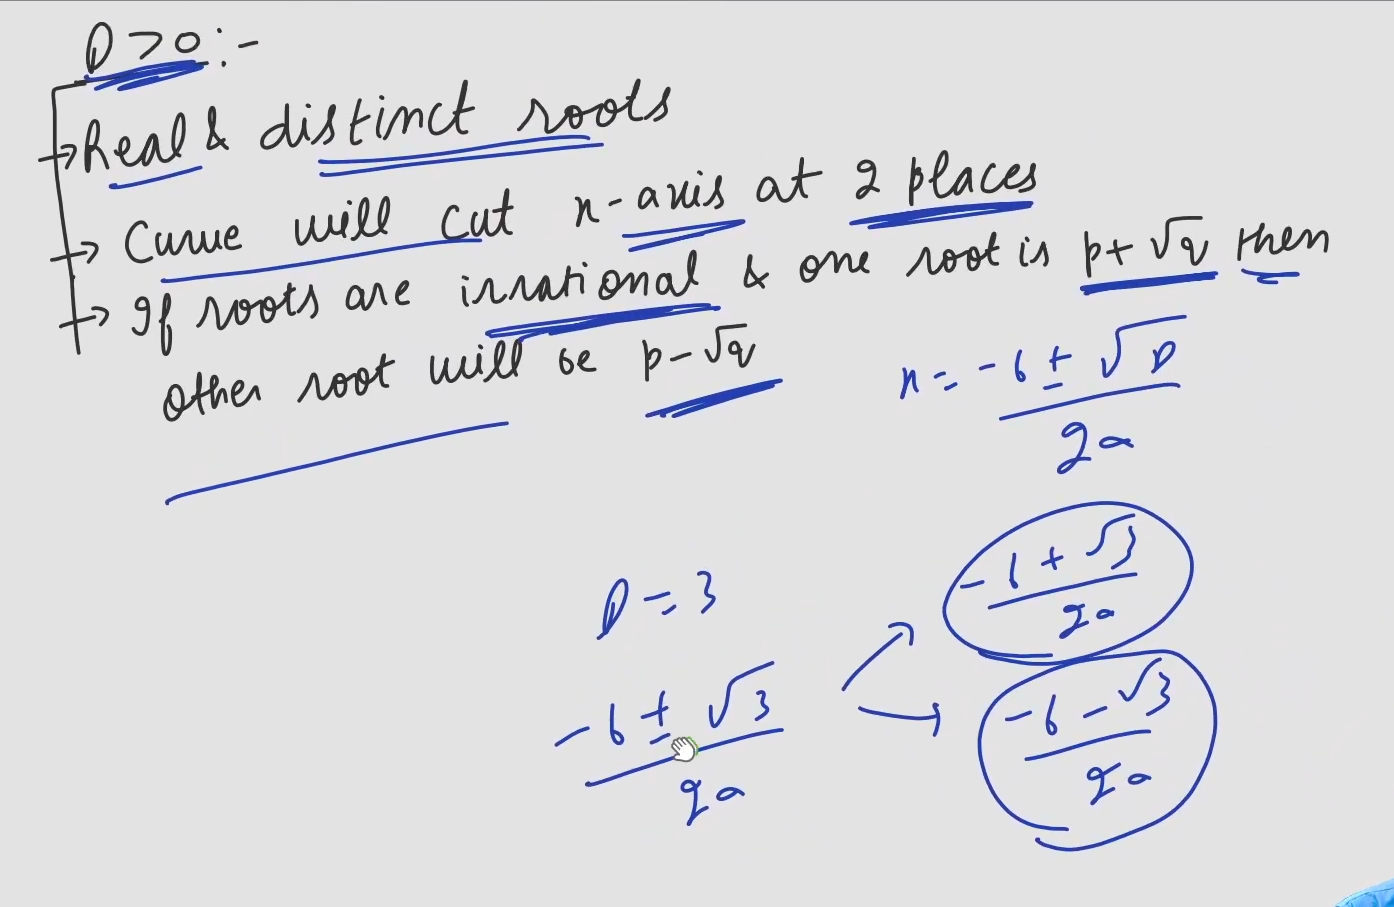 D > 0 :-
→ Real & distinct roots
→ Curve will cut x-axis at 2 places
→ If roots are irrational & one root is p + √q then
other root will be p - √q
x = -b ± √D
2a
D = 3
-b ± √3
2a
-b + √3
2a
-b - √3
2a